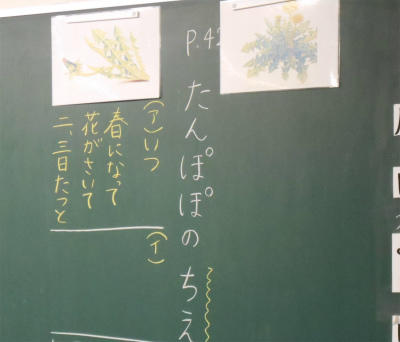 P.42
たんぽぽの ちえ
(ア)いつ
春になって
花がさいて
二、三日たつと
(イ)